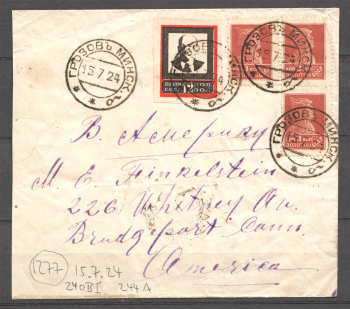 ГРОЗОВЪ МИНСК.
15.7.24
ГРОЗОВЪ МИНСК.
15.7.24
ГРОЗОВЪ МИНСК.
В Америку
M. E. Finkelstein
226 Whitney Av.
Bridgeport Conn.
America
1277
15.7.24
240BI 244A